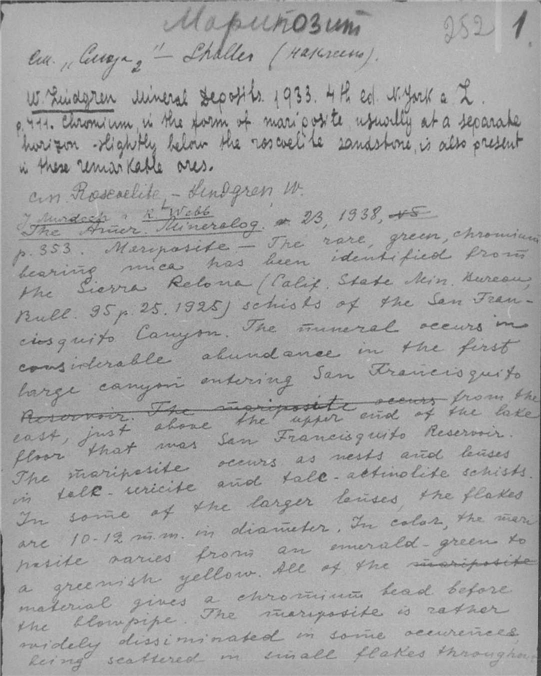 Марипозит
252 1
см. „Слюда2" — Shaller (наклеено).
W. Lindgren Mineral Deposits. 1933. 4th ed. N.York a. L.
p. 411. Chromium in the form of mariposite usually at a separate
horizon slightly below the roscoelite sandstone, is also present
in these remarkable ores.
см Roscoelite, – Lindgren, W.
J. Murdoch & R. Webb
The Amer. Mineralog. 23, 1938,
p. 353. Mariposite — The rare, green, chromium
bearing mica has been identified from
the Sierra Pelona (Calif. State Min. Bureau,
Bull. 95 p. 25. 1925) schists of the San Fran-
cisquito Canyon. The mineral occurs in
considerable abundance in the first
large canyon entering San Francisquito
Reservoir. The mariposite occurs from the
east, just above the upper end of the lake
floor that was San Francisquito Reservoir.
The mariposite occurs as nests and lenses
in talc-sericite and talc-actinolite schists.
In some of the larger lenses, the flakes
are 10-12 m.m. in diameter. In color, the mari
posite varies from an emerald-green to
a greenish yellow. All of the mariposite
material gives a chromium bead before
the blowpipe. The mariposite is rather
widely dissiminated in some occurences
being scattered in small flakes throughout